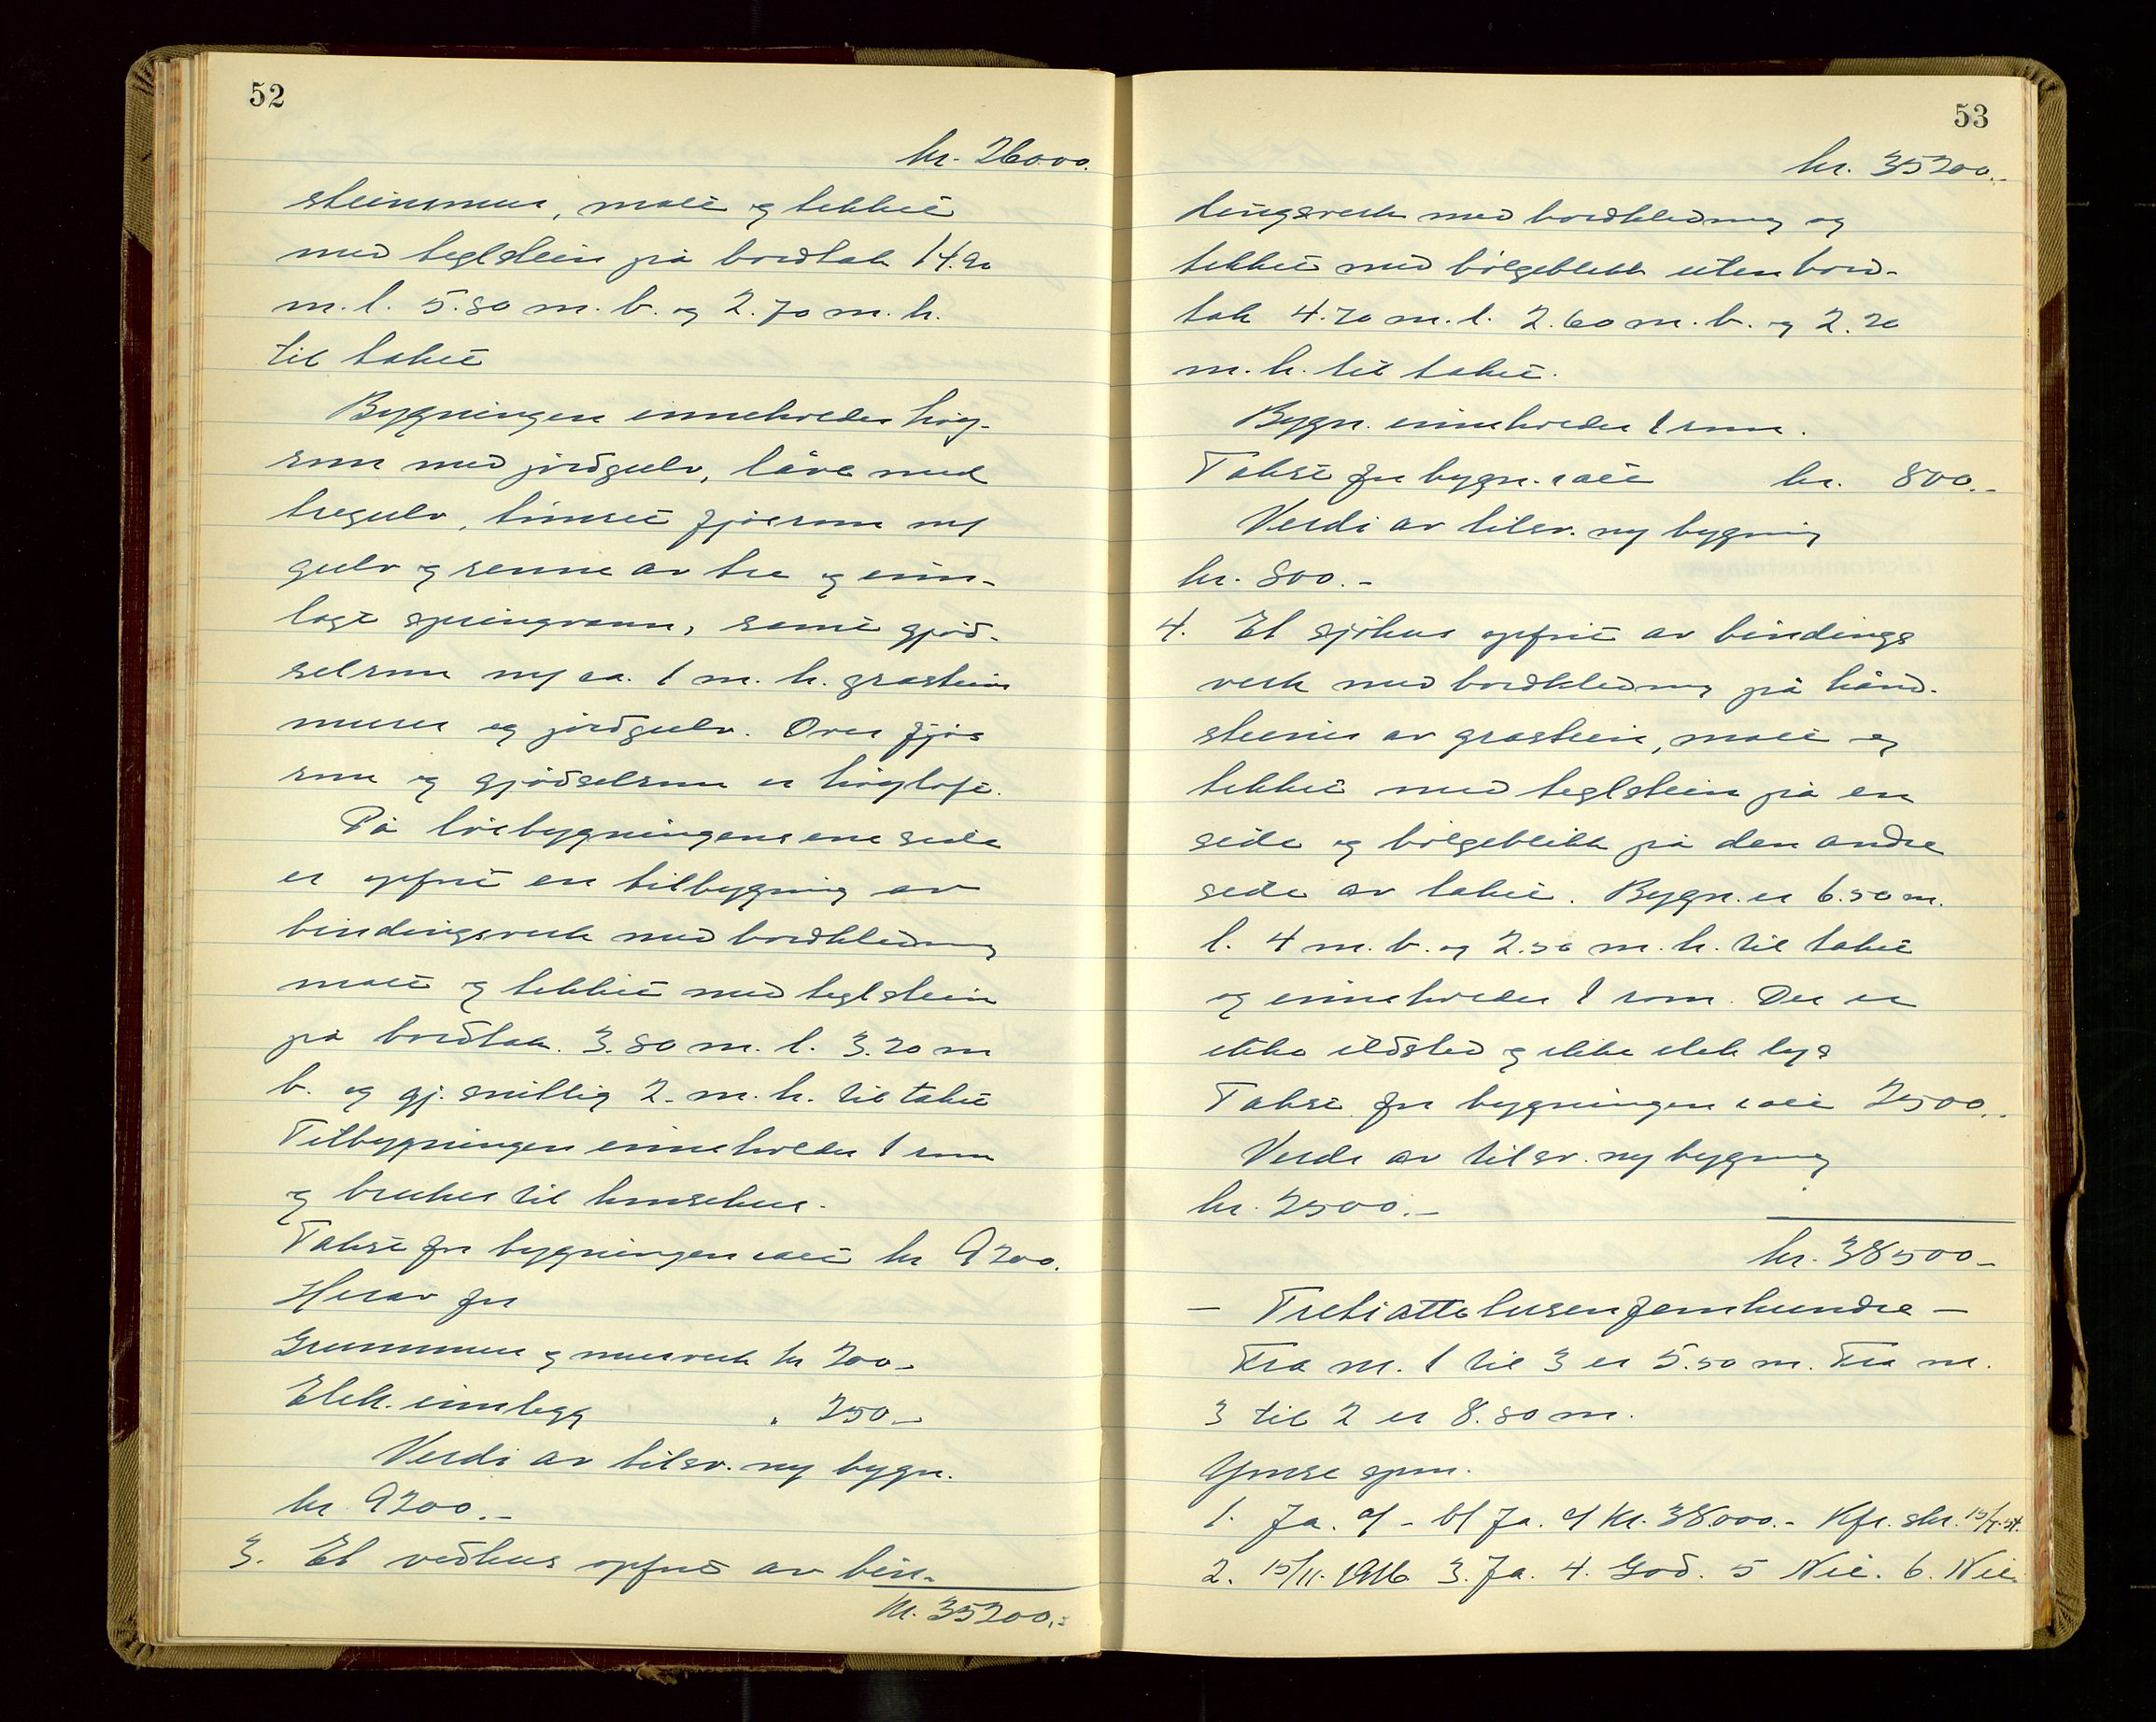 52
kr. 26000.
steinsmur, malt og tekket
med teglstein på bordtak 14.90
m. l. 5.80 m. b. og 2.70 m. h.
til taket
Bygningen inneholder høy-
rom med jordgulv, låve med
tregulv, timret fjøsrom m/
gulv og renne av tre og inn-
lagt springvann, samt gjød-
selrom m/ ca. 1 m. h. gråstein
murer og jordgulv. Over fjøs
rom og gjødselrom er høyloft.
På løebygningens ene side
er opført en tilbygning av
bindingsverk med bordkledning
malt og tekket med teglstein
på bordtak. 3.80 m. l. 3.20 m
b. og gj. snittlig 2. m. h. til taket
Tilbygningen inneholder 1 rom
og brukes til hønsehus.
Takst for bygningen satt kr 9200.
Herav for
Grunnmur og murverk kr 200.-
Elek. innlegg " 250.-
Verdi av tilsv. ny bygn.
kr 9200.-
3. Et vedhus opført av bin-
kr. 35200.-
53
kr. 35200.-
dingsverk med bordkledning og
tekket med bølgeblikk uten bord-
tak 4.70 m. l. 2.60 m. b. og 2.20
m. h. til taket.
Bygn. inneholder 1 rom.
Takst for bygn. satt kr. 800.-
Verdi av tilsv. ny bygning
kr. 800.-
4. Et sjøhus opført av bindings
verk med bordkledning på hånd-
steiner av gråstein, malt og
tekket med teglstein på en
side og bølgeblikk på den andre
side av taket. Bygn. er 6.50 m.
l. 4 m. b. og 2.50 m. h. til taket
og inneholder 1 rom. Der er
ikke ildsted og ikke elek lys
Takst for bygningen satt 2500.-
Verdi av tilsv. ny bygning
kr. 2500.-
kr. 38500.-
- Trettiåttetusenfemhundre -
Fra nr. 1 til 3 er 5.50 m. Fra nr.
3 til 2 er 8.80 m.
Ymse spm.
1. Ja. a/ - b/ Ja. c/ Kr. 38000.- Kfr. skr.
2. 15/11. 1916 3. Ja. 4. God. 5 Nei. 6. Nei.